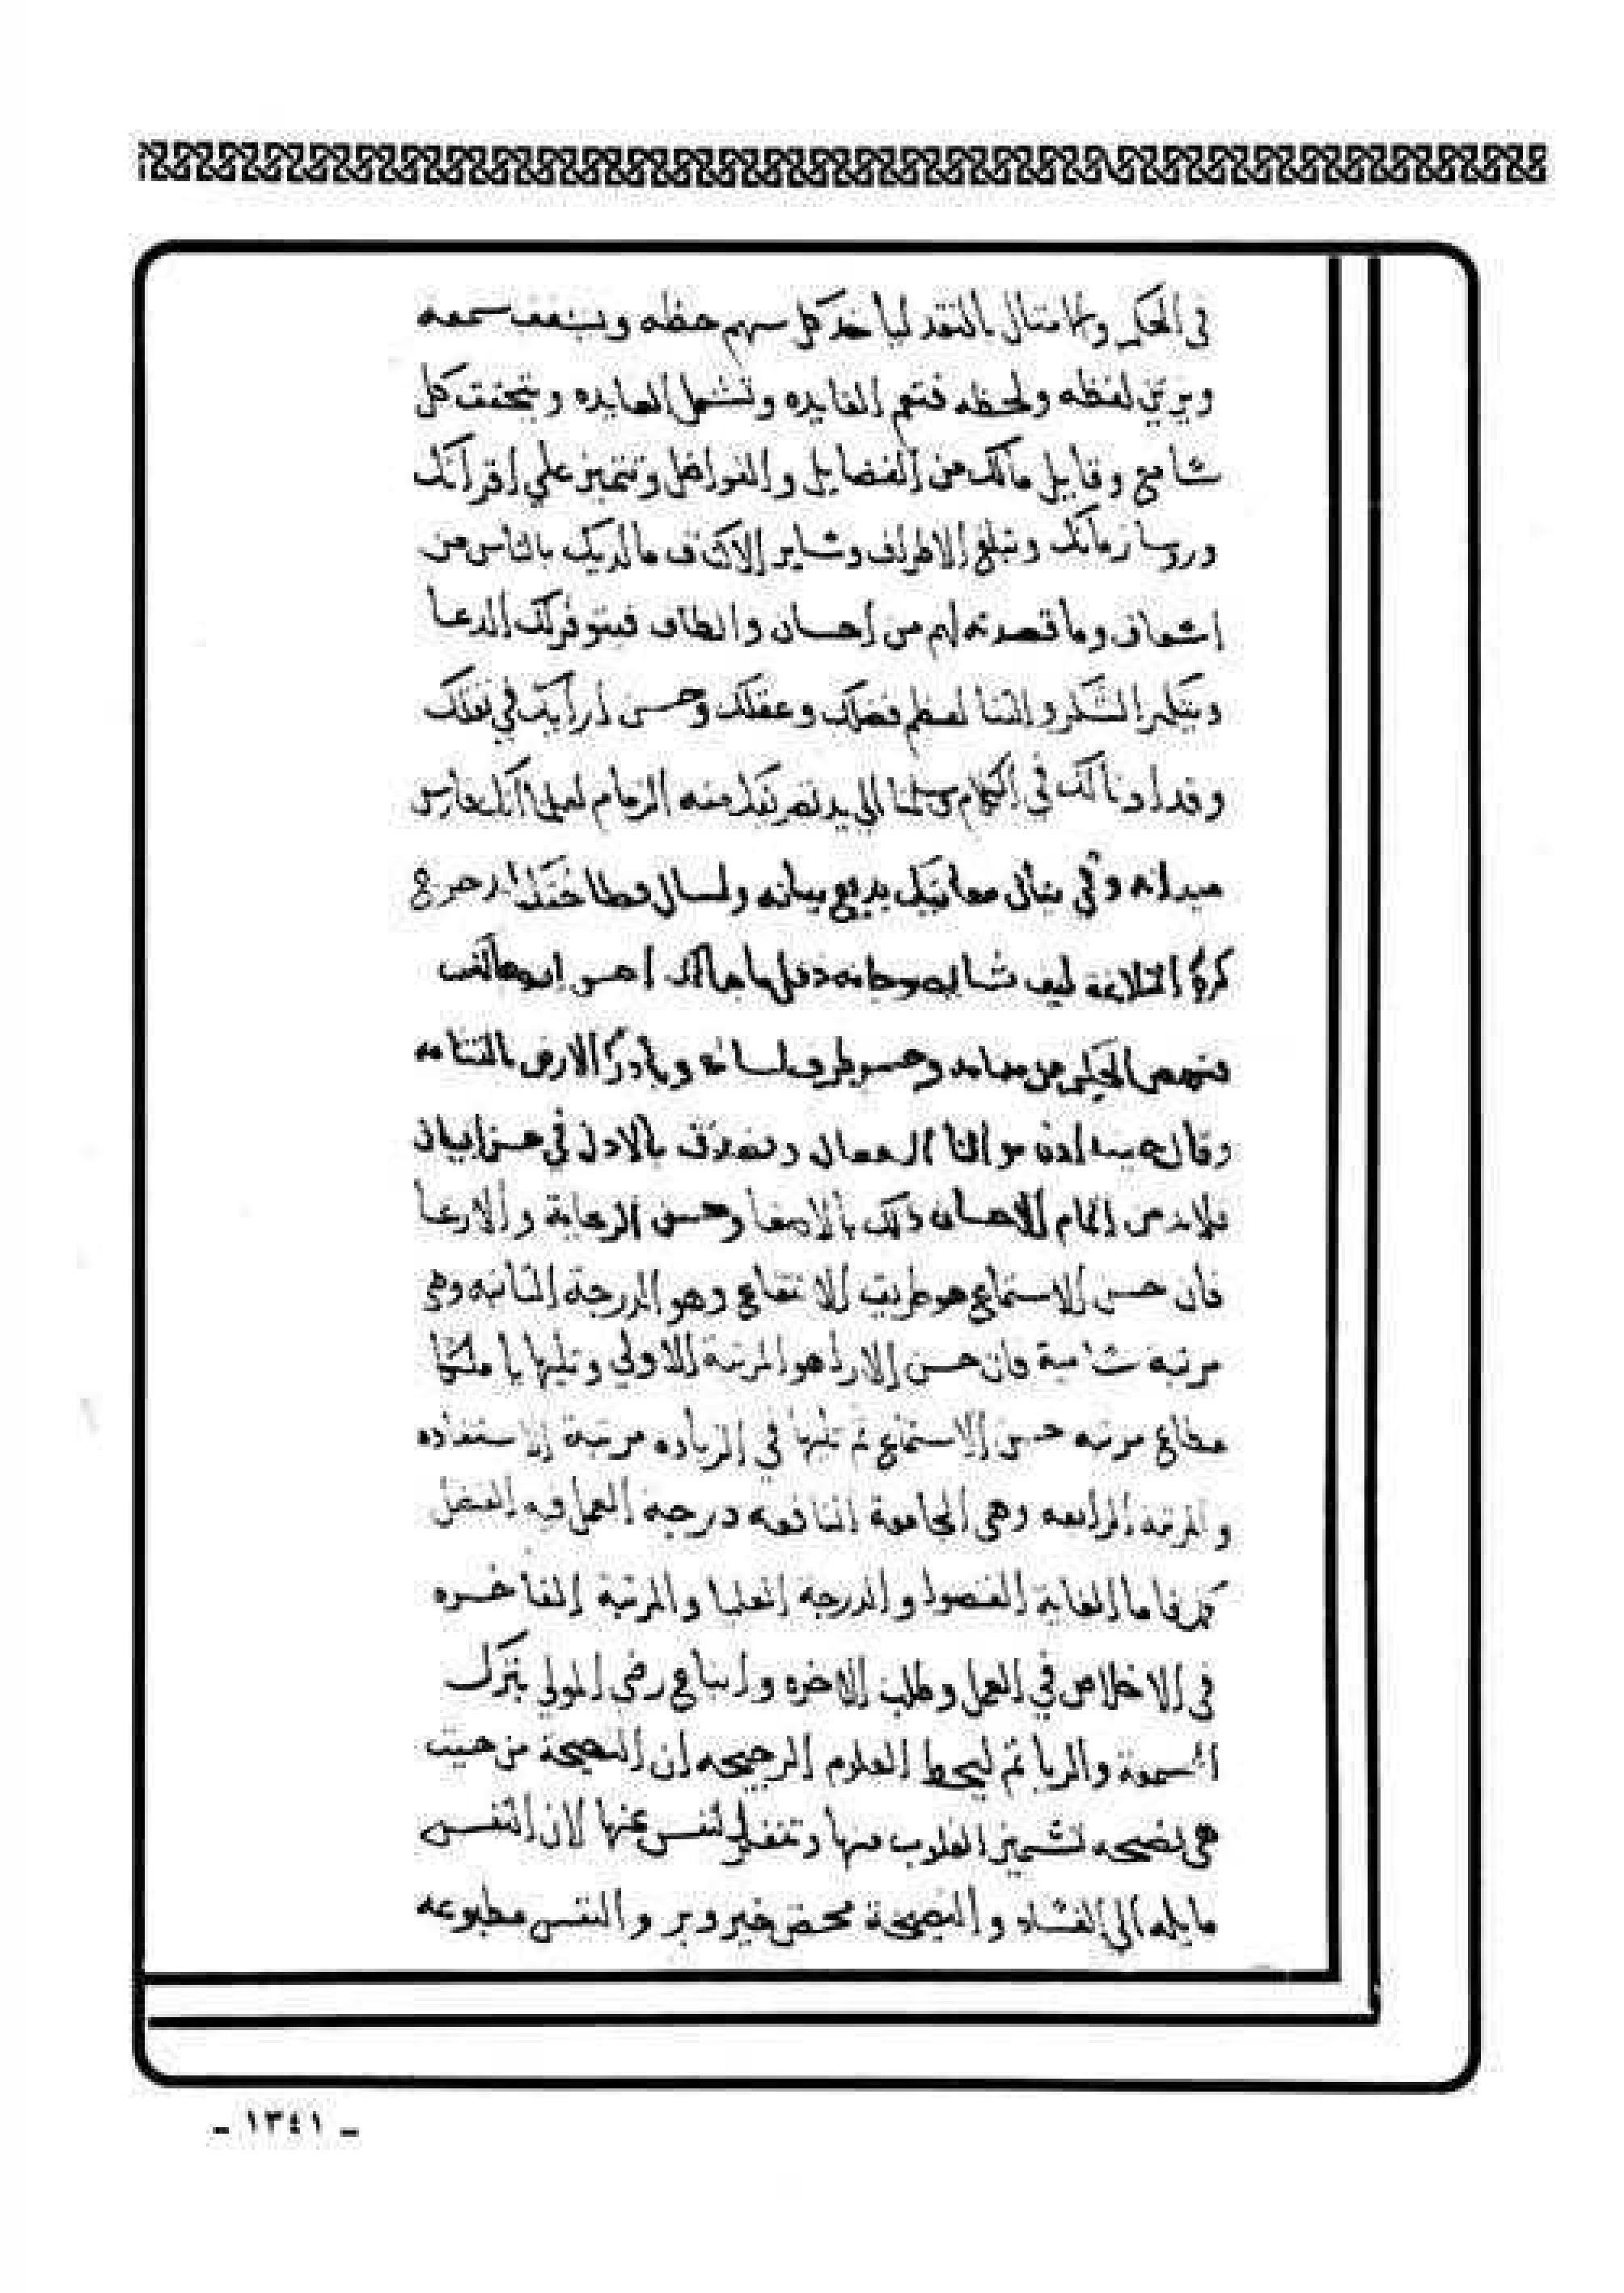 في الحكم والامتثال بالتقد لياخذ كل سهم حظه ويشنف سمعه
ويزين لفظه ولحظه فتعم الفايده وتشمل العايده ويتحقق كل
شامع وقايل مالك من الفضايل والفواضل وتتميز علي اقرانك
وروسا زمانك وتبلغ الاطراف وساير الاكناف مالديك بالناس من
اسعاف وما قصدته لهم من احسان والطاف فيتوفر لك الدعا
ويتكثر الشكر والثنا لعظم فضلك وعقلك وحسن ارايك في نقلك
وقد اذنا لك في الكلام وسلمنا الي يد تصرفك منه الزمام
ميدانه وفي بيان معانيك بديع بيانه
كرة البلاغة كيف شا
فنهض الحكيم من وبادر الارض بالتثامه
وقال حيث اذن مولانا بالادن في
فلابد من اتمام الاحسان ذلك بالاصغا وحسن الرعاية والارعا
فان حسن الاستماع هو طريق الانتفاع وهو الدرجة الثانيه وهي
مرتبة سامية فان حسن الارا هو المرتبة الاولي وتليها يا ملكا
مطاع مرتبه حسن الاستماع ثم تليها في الزياده مرتبة الاستفاده
والمرتبة الرابعه وهي الجامعة النافعه درجة العمل فيه
فاما الغاية القصوا والدرجة العليا والمرتبة الفاخره
في الاخلاص في العمل وطلب الاخره واتباع رضي المولي بترك
السمعة والريا ثم ليحط العلوم الرجيحه ان النصيحة من حيث
هي نصيحه تشميز القلوب منها وتنفر النفس عنها لان النفس
مايله الي الفساد والنصيحة محض خير وبر والنفس مطبوعه
- ١٣٤١ -